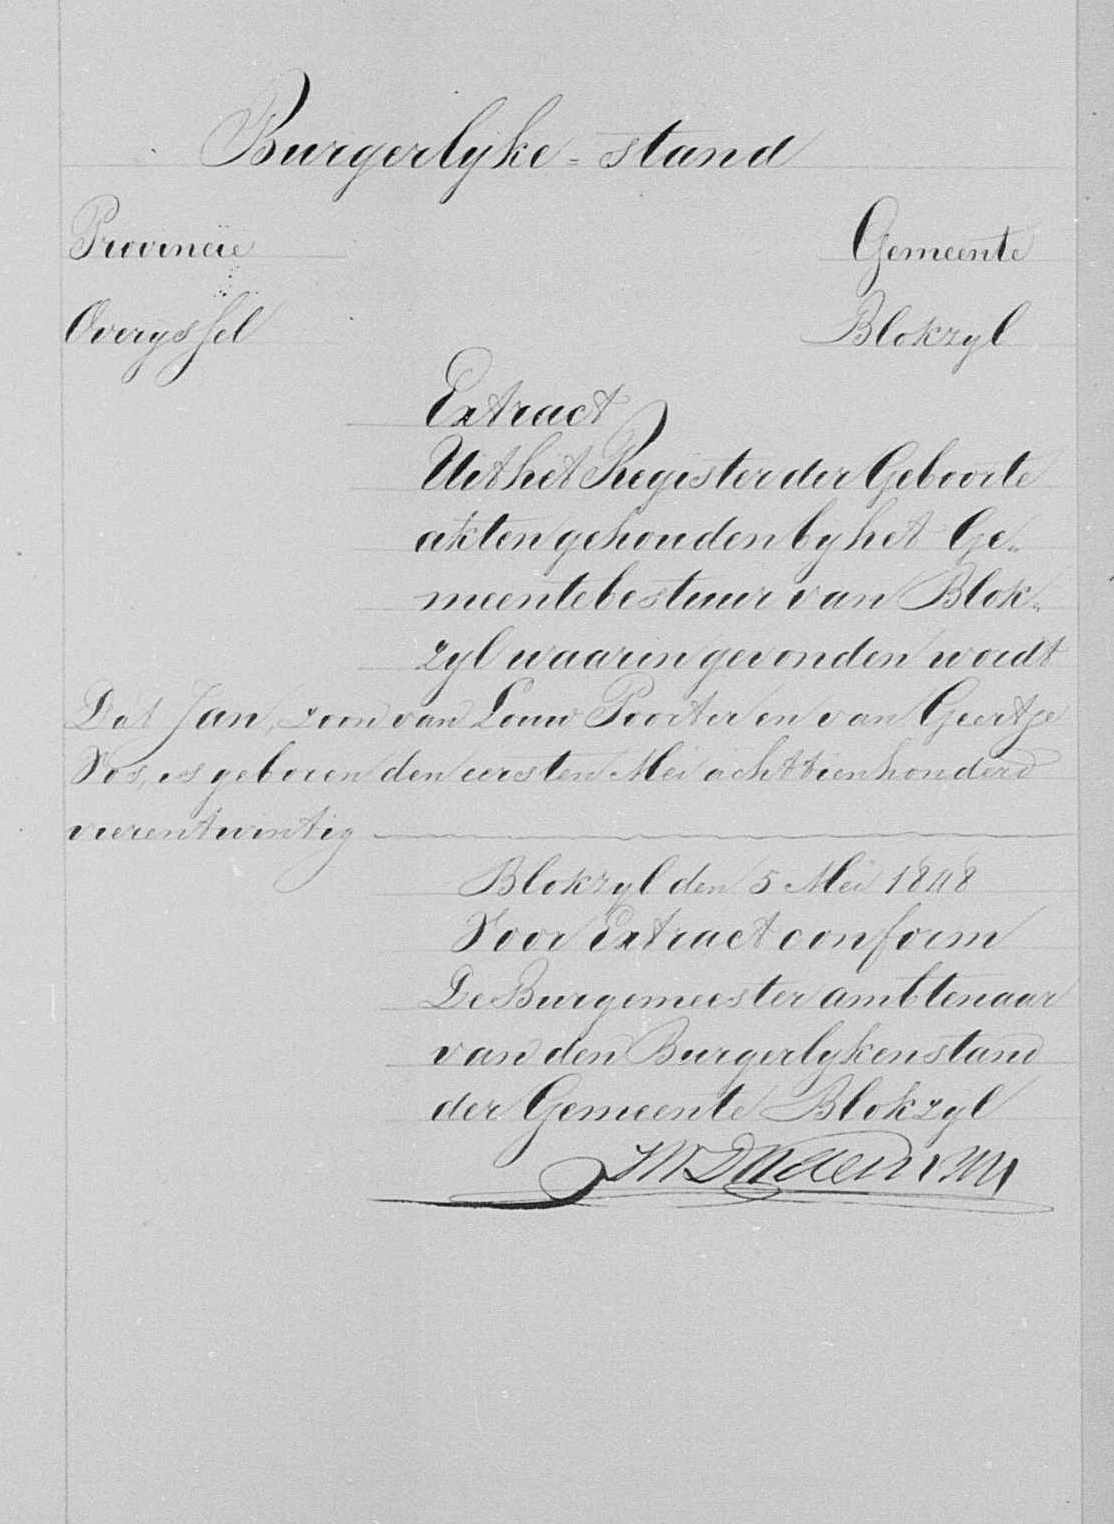 Burgerlyke-stand
Provincie Gemeente
Overyssel Blokzyl
Extract
Uit het Register der Geboorte
akten gehouden by het Ge„
meentebestuur van Blok„
zyl waarin gevonden wordt
Dat Jan, zoon van Louw Poorter en van Geertje
Vos, is geboren den eersten Mei achttienhonderd
vierentwintig
Blokzyl den 5 Mei 1848
Voor Extract conform
De Burgemeester ambtenaar
van den Burgerlyken stand
der Gemeente Blokzyl